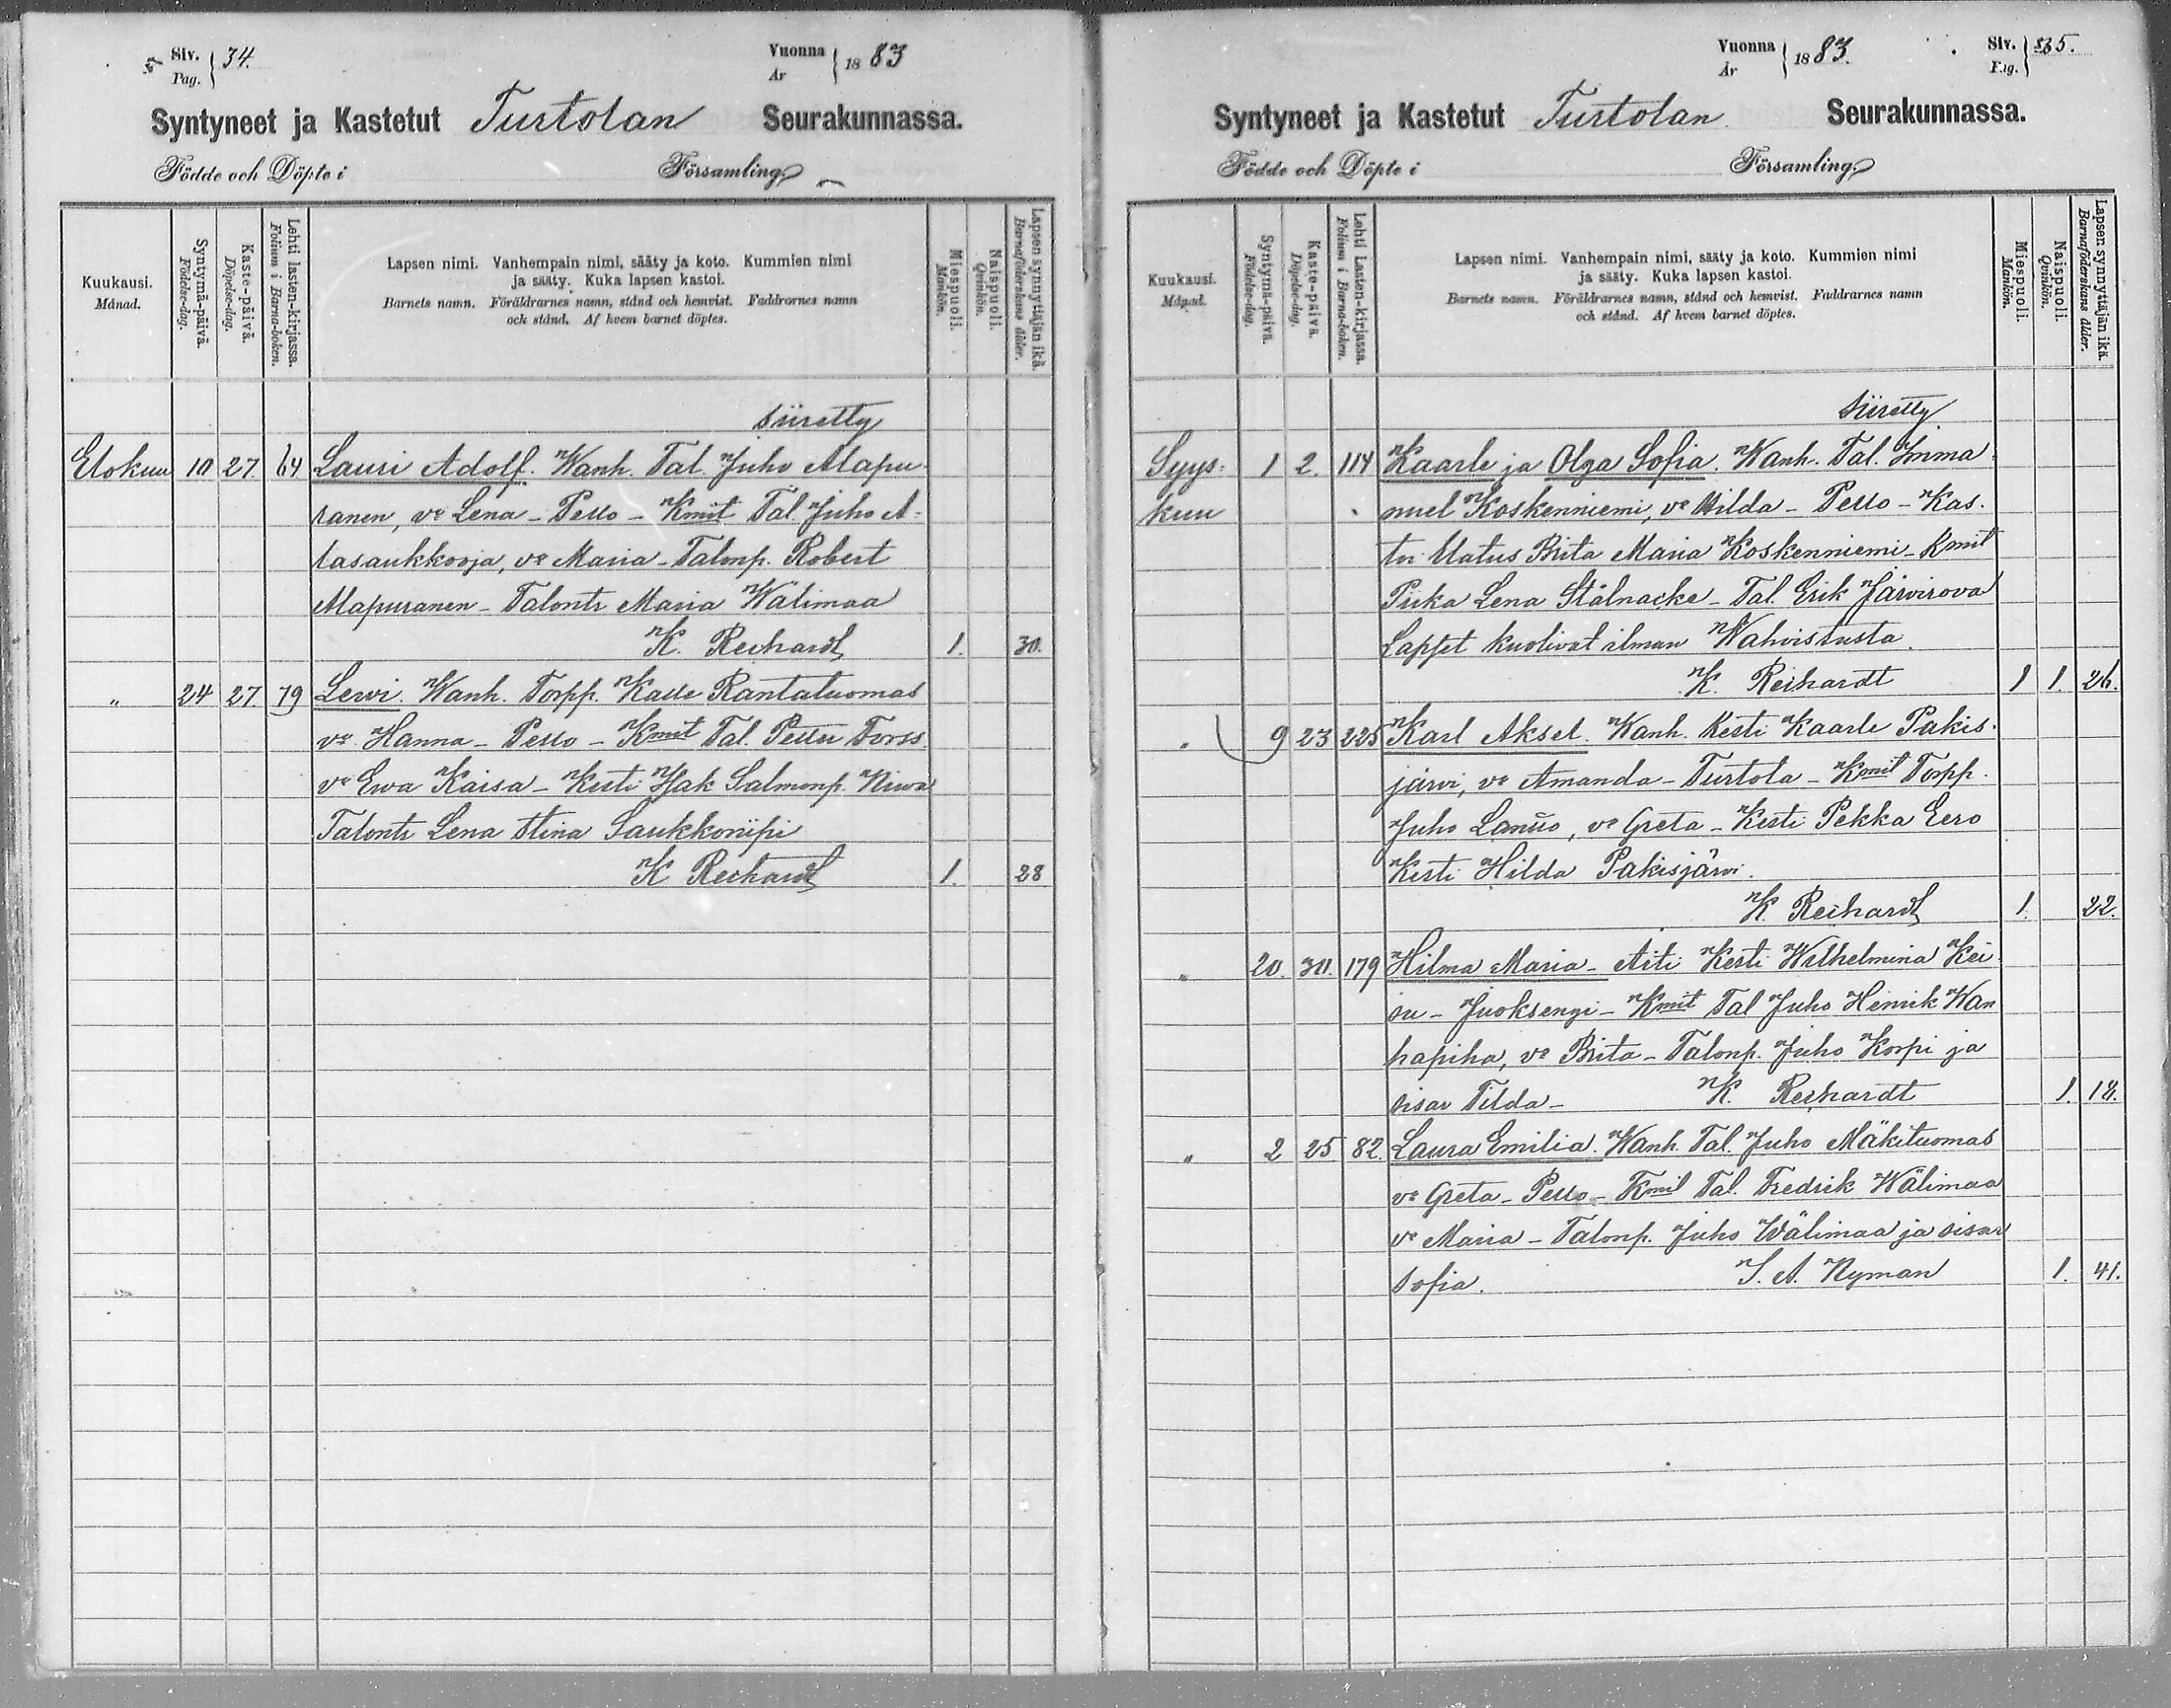 Siv. Pag. 34. Vuonna År 1883
Syntyneet ja Kastetut Turtolan Seurakunnassa.
Födde och Döpte i Församling
Kuukausi. Månad.
Syntymä-päivä. Födelse-dag.
Kaste-päivä. Döpelse-dag.
Lehti lasten-kirjassa. Folium i Barna-boken.
Lapsen nimi. Vanhempain nimi, sääty ja koto. Kummien nimi
ja sääty. Kuka lapsen kastoi.
Barnets namn. Föräldrarnes namn, stånd och hemvist. Faddrarnes namn
och stånd. Af hvem barnet döptes.
Miespuoli. Mankön.
Naispuoli. Qvinkön.
Lapsen synnyttäjän ikä. Barnaföderskans ålder.
siiretty
Elokuu 10 27. 64. Lauri Adolf. Wanh. Tal. Juho Alapu-
ranen, vo Lena - Pello - Kmit Tal. Juho A-
lasaukkooja, vo Maria - Talonp. Robert
Alapuranen - Talontr Maria Wälimaa
K. Reihardt 1. 30.
" 24 27. 79 Lewi. Wanh. Torpp. Kalle Rantatuomas
vo Hanna - Pello - Kmit Tal. Petter Forss
vo Ewa Kaisa - Kesti Isak Salmonp. Niwa
Talontr Lena Stina Saukkoniipi
K Reihardt 1. 28
Vuonna År 1883. Siv. Pag. 35.
Syntyneet ja Kastetut Turtolan Seurakunnassa.
Födde och Döpte i Församling
Kuukausi. Månad.
Syntymä-päivä. Födelse-dag.
Kaste-päivä. Döpelse-dag.
Lehti Lasten-kirjassa. Folium i Barna-boken.
Lapsen nimi. Vanhempain nimi, sääty ja koto. Kummien nimi
ja sääty. Kuka lapsen kastoi.
Barnets namn. Föräldrarnes namn, stånd och hemvist. Faddrarnes namn
och stånd. Af hvem barnet döptes.
Miespuoli. Mankön.
Naispuoli. Qvinkön.
Lapsen synnyttäjän ikä. Barnaföderskans ålder.
siiretty
Syys- 1 2. 114 Kaarle ja Olga Sofia. Wanh. Tal. Imma-
kuu nuel Koskenniemi, vo Hilda - Pello - Kas-
toi Matus Brita Maria Koskenniemi - Kmit
Piika Lena Stålnacke - Tal. Erik Järvirova
Lapset kuolivat ilman Wahvistusta.
K. Reihardt 1 1. 26.
" 9 23 225 Karl Aksel. Wanh. Kesti Kaarle Pakis-
järvi, vo Amanda - Turtola - Kmit Torpp.
Juho Lantto, vo Greta - Kesti Pekka Eero
Kesti Hilda Pakisjärvi.
K. Reihardt 1. 22.
" 20. 30. 179 Hilma Maria - Äiti Kesti Wilhelmina Kei-
su - Juoksengi - Kmit Tal Juho Henrik Wan
hapiha, vo Brita - Talonp. Juho Korpi ja
sisar Tilda - K. Reihardt 1. 18.
" 2 25 82. Laura Emilia. Wanh. Tal. Juho Mäkituomas
vo Greta - Pello - Kmit Tal. Fredrik Wälimaa
vo Maria - Talonp. Juho Wälimaa ja sisar
Sofia. I. A. Nyman 1. 41.